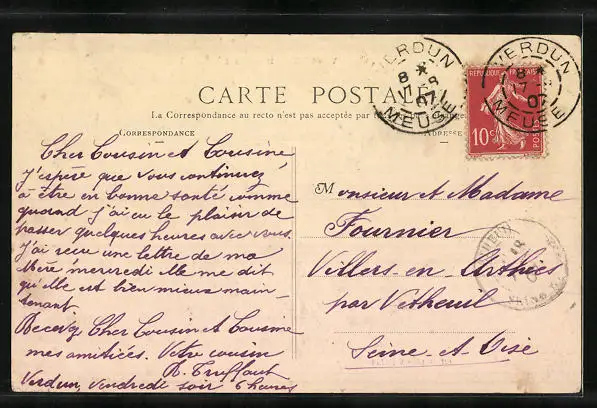 CARTE POSTALE
La Correspondance au recto n'est pas acceptée par
CORRESPONDANCE
ADRESSE
VERDUN
8 *
07
MEUSE
VERDUN
8 *
07
MEUSE
REPUBLIQUE FRANÇAISE
10c
POSTES
Cher Cousin et Cousine
J'espère que vous continuez
à être en bonne santé comme
quand j'ai eu le plaisir de
passer quelques heures avec vous.
J'ai reçu une lettre de ma
Mère mercredi elle me dit
qu'elle est bien mieux main-
tenant
Recevez Cher Cousin et Cousine
mes amitiées. Votre cousin
R. Truffaut
Verdun, Vendredi soir 6 heures
Monsieur et Madame
Fournier
Villers en Arthies
par Vetheuil
Seine-et-Oise